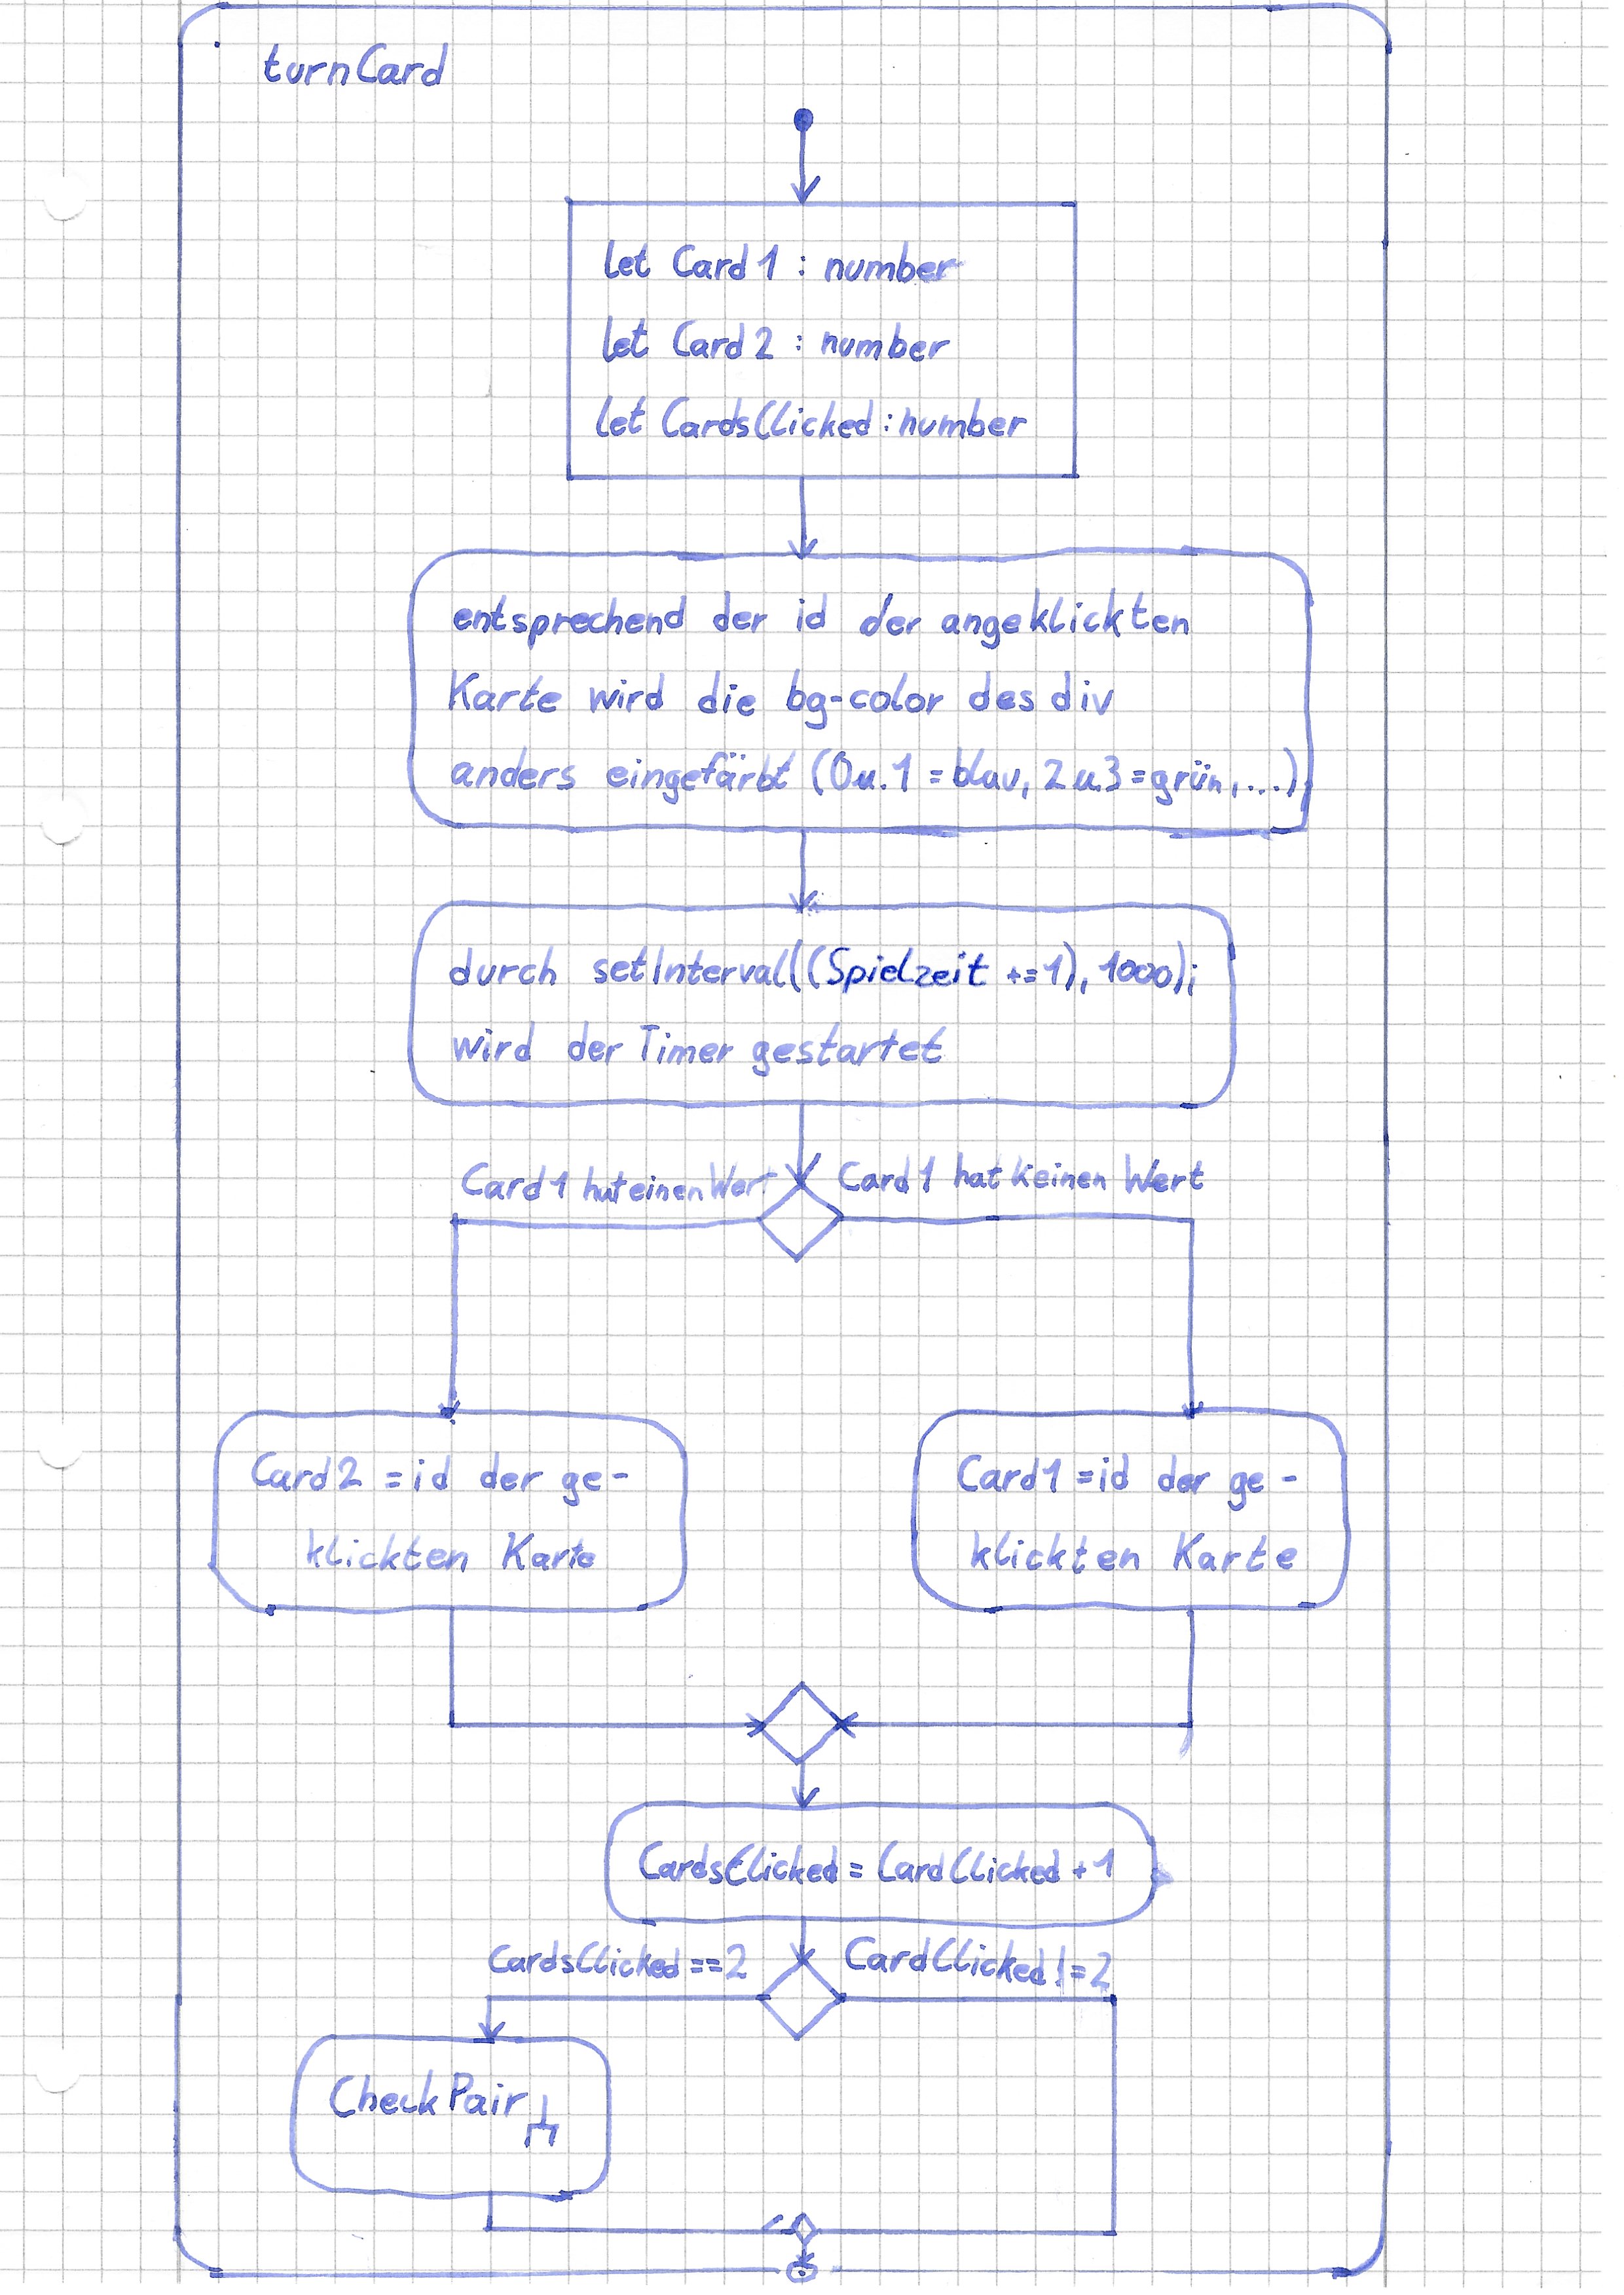 turnCard
let Card1 : number
let Card2 : number
let CardsClicked : number
entsprechend der id der angeklickten
Karte wird die bg-color des div
anders eingefärbt (0 u. 1 = blau, 2 u. 3 = grün, ...)
durch setInterval((Spielzeit +=1), 1000);
wird der Timer gestartet
Card1 hat einen Wert
Card1 hat keinen Wert
Card2 = id der ge-
klickten Karte
Card1 = id der ge-
klickten Karte
CardsClicked = CardClicked + 1
CardsClicked == 2
CardClicked != 2
CheckPair